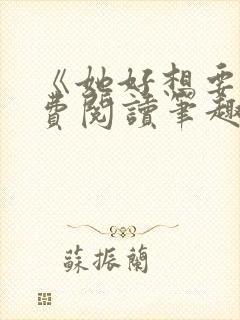 《她好想要
费閱讀筆趣
蘇振蘭